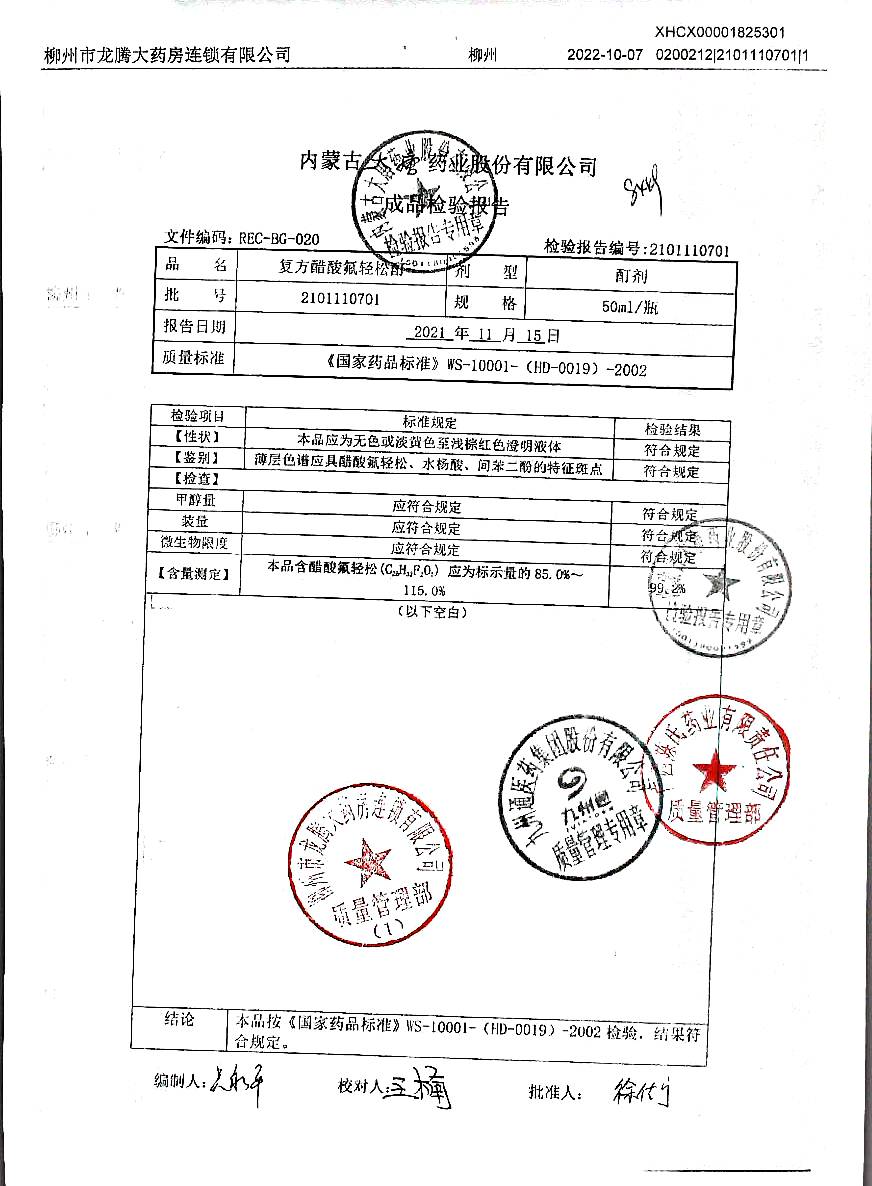 XHCX00001825301
柳州市龙腾大药房连锁有限公司 柳州 2022-10-07 0200212|2101110701|1
内蒙古大唐药业股份有限公司
成品检验报告
文件编码: REC-BG-020 检验报告编号:2101110701
品 名 复方醋酸氟轻松酊 剂 型 酊剂
批 号 2101110701 规 格 50ml/瓶
报告日期 2021 年 11 月 15 日
质量标准 《国家药品标准》WS-10001-（HD-0019）-2002
检验项目 标准规定 检验结果
【性状】 本品应为无色或淡黄色至浅棕红色澄明液体 符合规定
【鉴别】 薄层色谱应具醋酸氟轻松、水杨酸、间苯二酚的特征斑点 符合规定
【检查】
甲醇量 应符合规定 符合规定
装量 应符合规定 符合规定
微生物限度 应符合规定 符合规定
【含量测定】 本品含醋酸氟轻松(C₂₆H₃₂F₂O₇) 应为标示量的 85.0%～ 99.2%
115.0%
(以下空白)
检验报告专用章
检验报告专用章
九州通医药集团股份有限公司
九州通
质量管理专用章
药业有限责任公司
质量管理部
柳州市龙腾大药房连锁有限公司
质量管理部
(1)
结论 本品按《国家药品标准》WS-10001-（HD-0019）-2002 检验，结果符
合规定。
编制人: 校对人: 批准人: